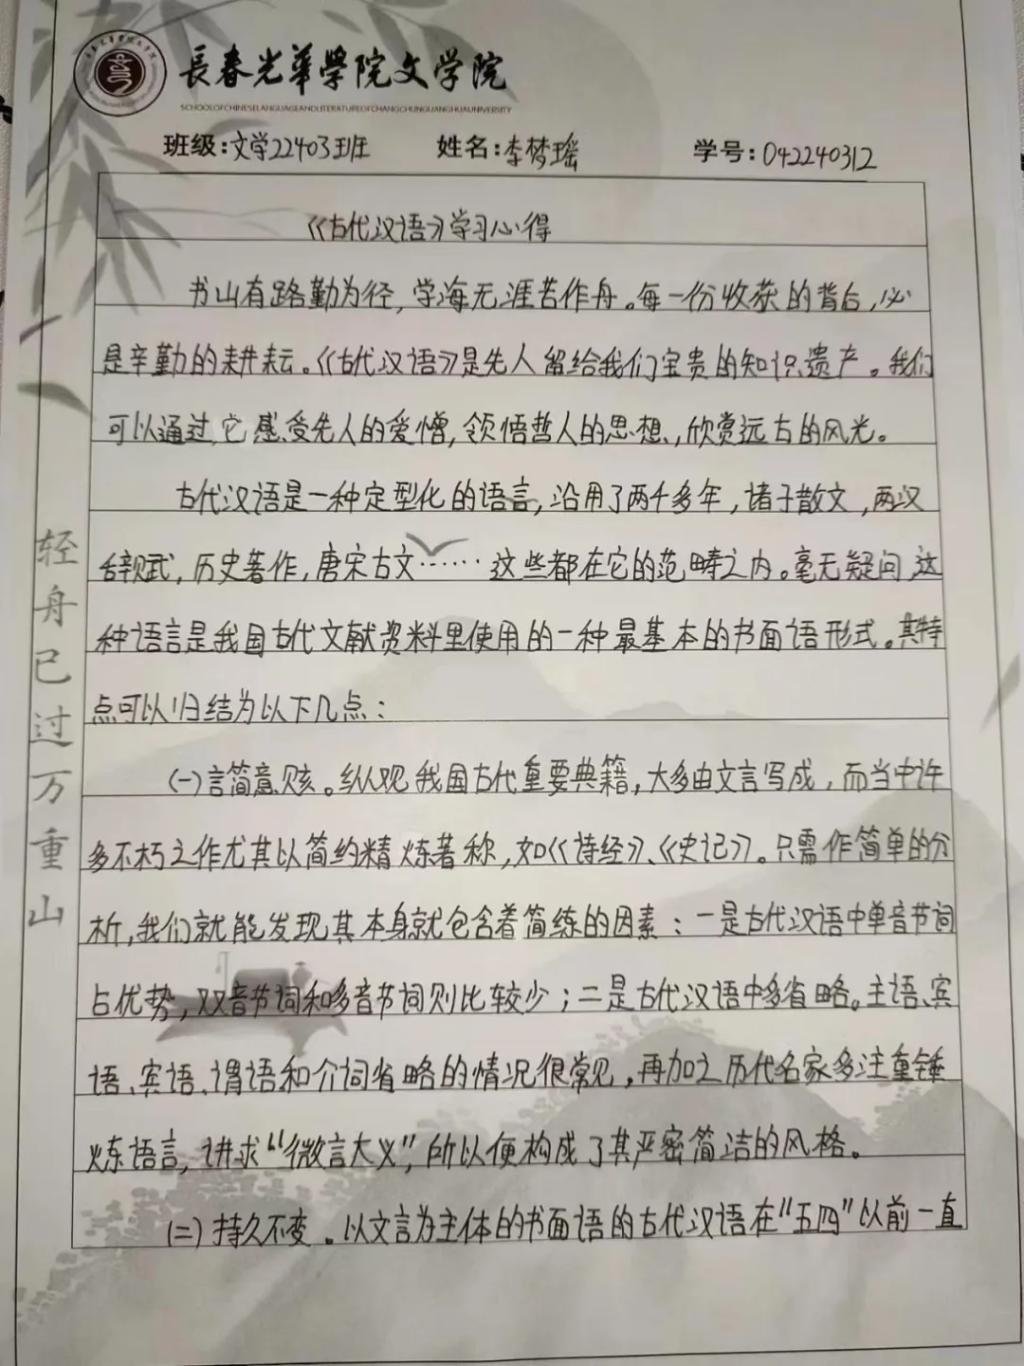 長春光華學院文学院
SCHOOLOFCHINESELANGUAGEANDLITERATUREOFCHANGCHUNGUANGHUAUNIVERSITY
班级:文学22403班 姓名:李梦瑶 学号:042240312
《古代汉语》学习心得
书山有路勤为径,学海无涯苦作舟。每一份收获的背后,必
是辛勤的耕耘。《古代汉语》是先人留给我们宝贵的知识遗产。我们
可以通过它感受先人的爱憎,领悟哲人的思想,欣赏远古的风光。
古代汉语是一种定型化的语言,沿用了两千多年,诸子散文,两汉
辞赋,历史著作,唐宋古文……这些都在它的范畴之内。毫无疑问,这
种语言是我国古代文献资料里使用的一种最基本的书面语形式。其特
点可以归结为以下几点:
(一)言简意赅。纵观我国古代重要典籍,大多由文言写成,而当中许
多不朽之作尤其以简约精炼著称,如《诗经》、《史记》。只需作简单的分
析,我们就能发现其本身就包含着简练的因素:一是古代汉语中单音节词
占优势,双音节词和多音节词则比较少;二是古代汉语中多省略。主语、宾
语、宾语、谓语和介词省略的情况很常见,再加之历代名家多注重锤
炼语言,讲求“微言大义”,所以便构成了其严密简洁的风格。
(二)持久不变。以文言为主体的书面语的古代汉语在“五四”以前一直
轻舟已过万重山